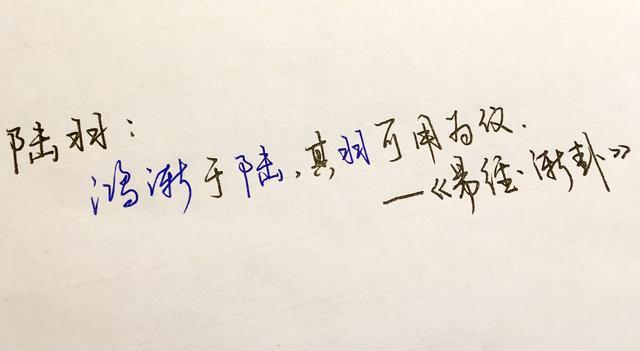 陆羽：
鸿渐于陆，其羽可用为仪．
—《易经·渐卦》